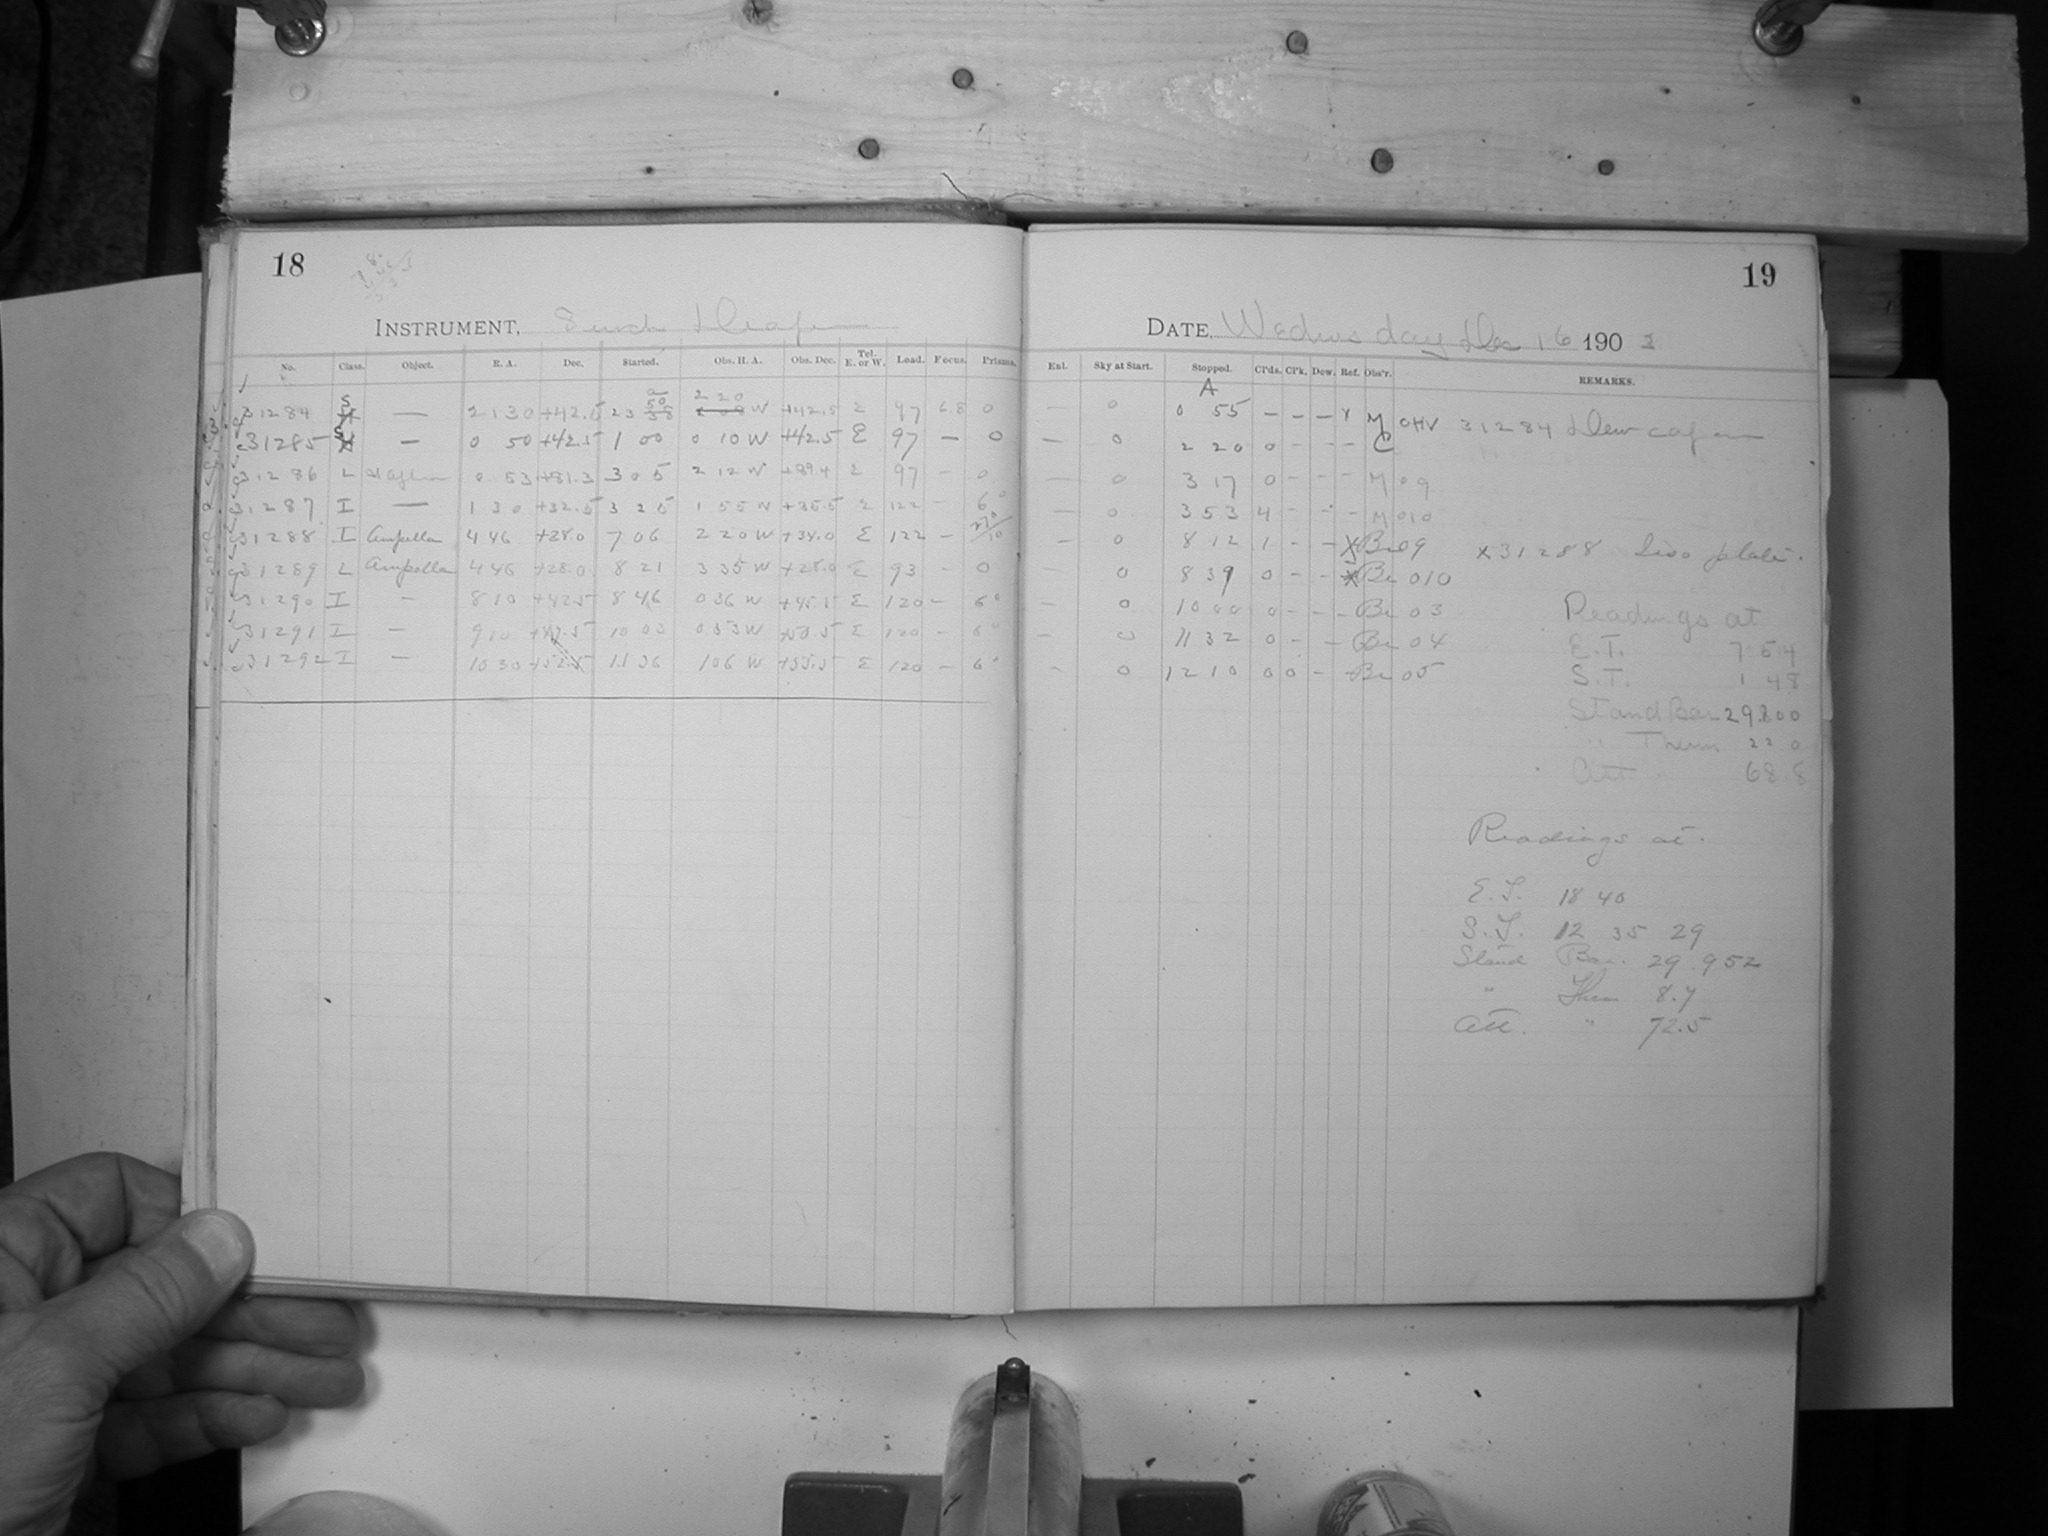 18
INSTRUMENT,
No. Class. Object. R. A. Dec. Started. Obs. H. A. Obs. Dec. Tel. E. or W. Load. Focus. Prisms.
31284 S — 21 30 +42.5 23 50 2 20 W +42.5 E 97 6.8 0
31285 S — 0 50 +42.5 1 00 0 10 W +42.5 E 97 — 0
31286 L 0 53 +81.3 3 05 2 12 W +89.4 E 97 — 0
31287 I — 1 30 +32.5 3 25 1 55 W +35.5 E 122 — 6°
31288 I Ampella 4 46 +28.0 7 06 2 20 W +34.0 E 122 —
31289 L Ampella 4 46 +28.0 8 21 3 35 W +28.0 E 93 — 0
31290 I — 8 10 +42.5 8 46 0 36 W +45.5 E 120 — 6°
31291 I — 9 10 10 03 0 53 W E 120 — 6°
31292 I — 10 30 +52.5 11 36 1 06 W +55.5 E 120 — 6°
19
DATE, Wednesday Dec 16 1903
Enl. Sky at Start. Stopped. Cl'ds. Cl'k. Dew. Ref. Obs'r. REMARKS.
A
— 0 0 55 — — — x M OHV 31284 Dew cap on
— 0 2 20 0 - - - C
— 0 3 17 0 - - - M 09
— 0 3 53 4 - - - M 010
— 0 8 12 1 - - X Be 09 x 31288 Iso plate.
0 8 39 0 - - Be 010
— 0 10 00 0 - - - Be 03
— 0 11 32 0 - - Be 04
— 0 12 10 0 0 - Be 05
Readings at
E.T. 7 54
S.T. 1 48
Stand Bar 29.800
" Therm 22.0
Att 68.8
Readings at.
E.T. 18 40
S.T. 12 35 29
Stand Bar. 29.952
" Ther 8.7
Att. " 72.5